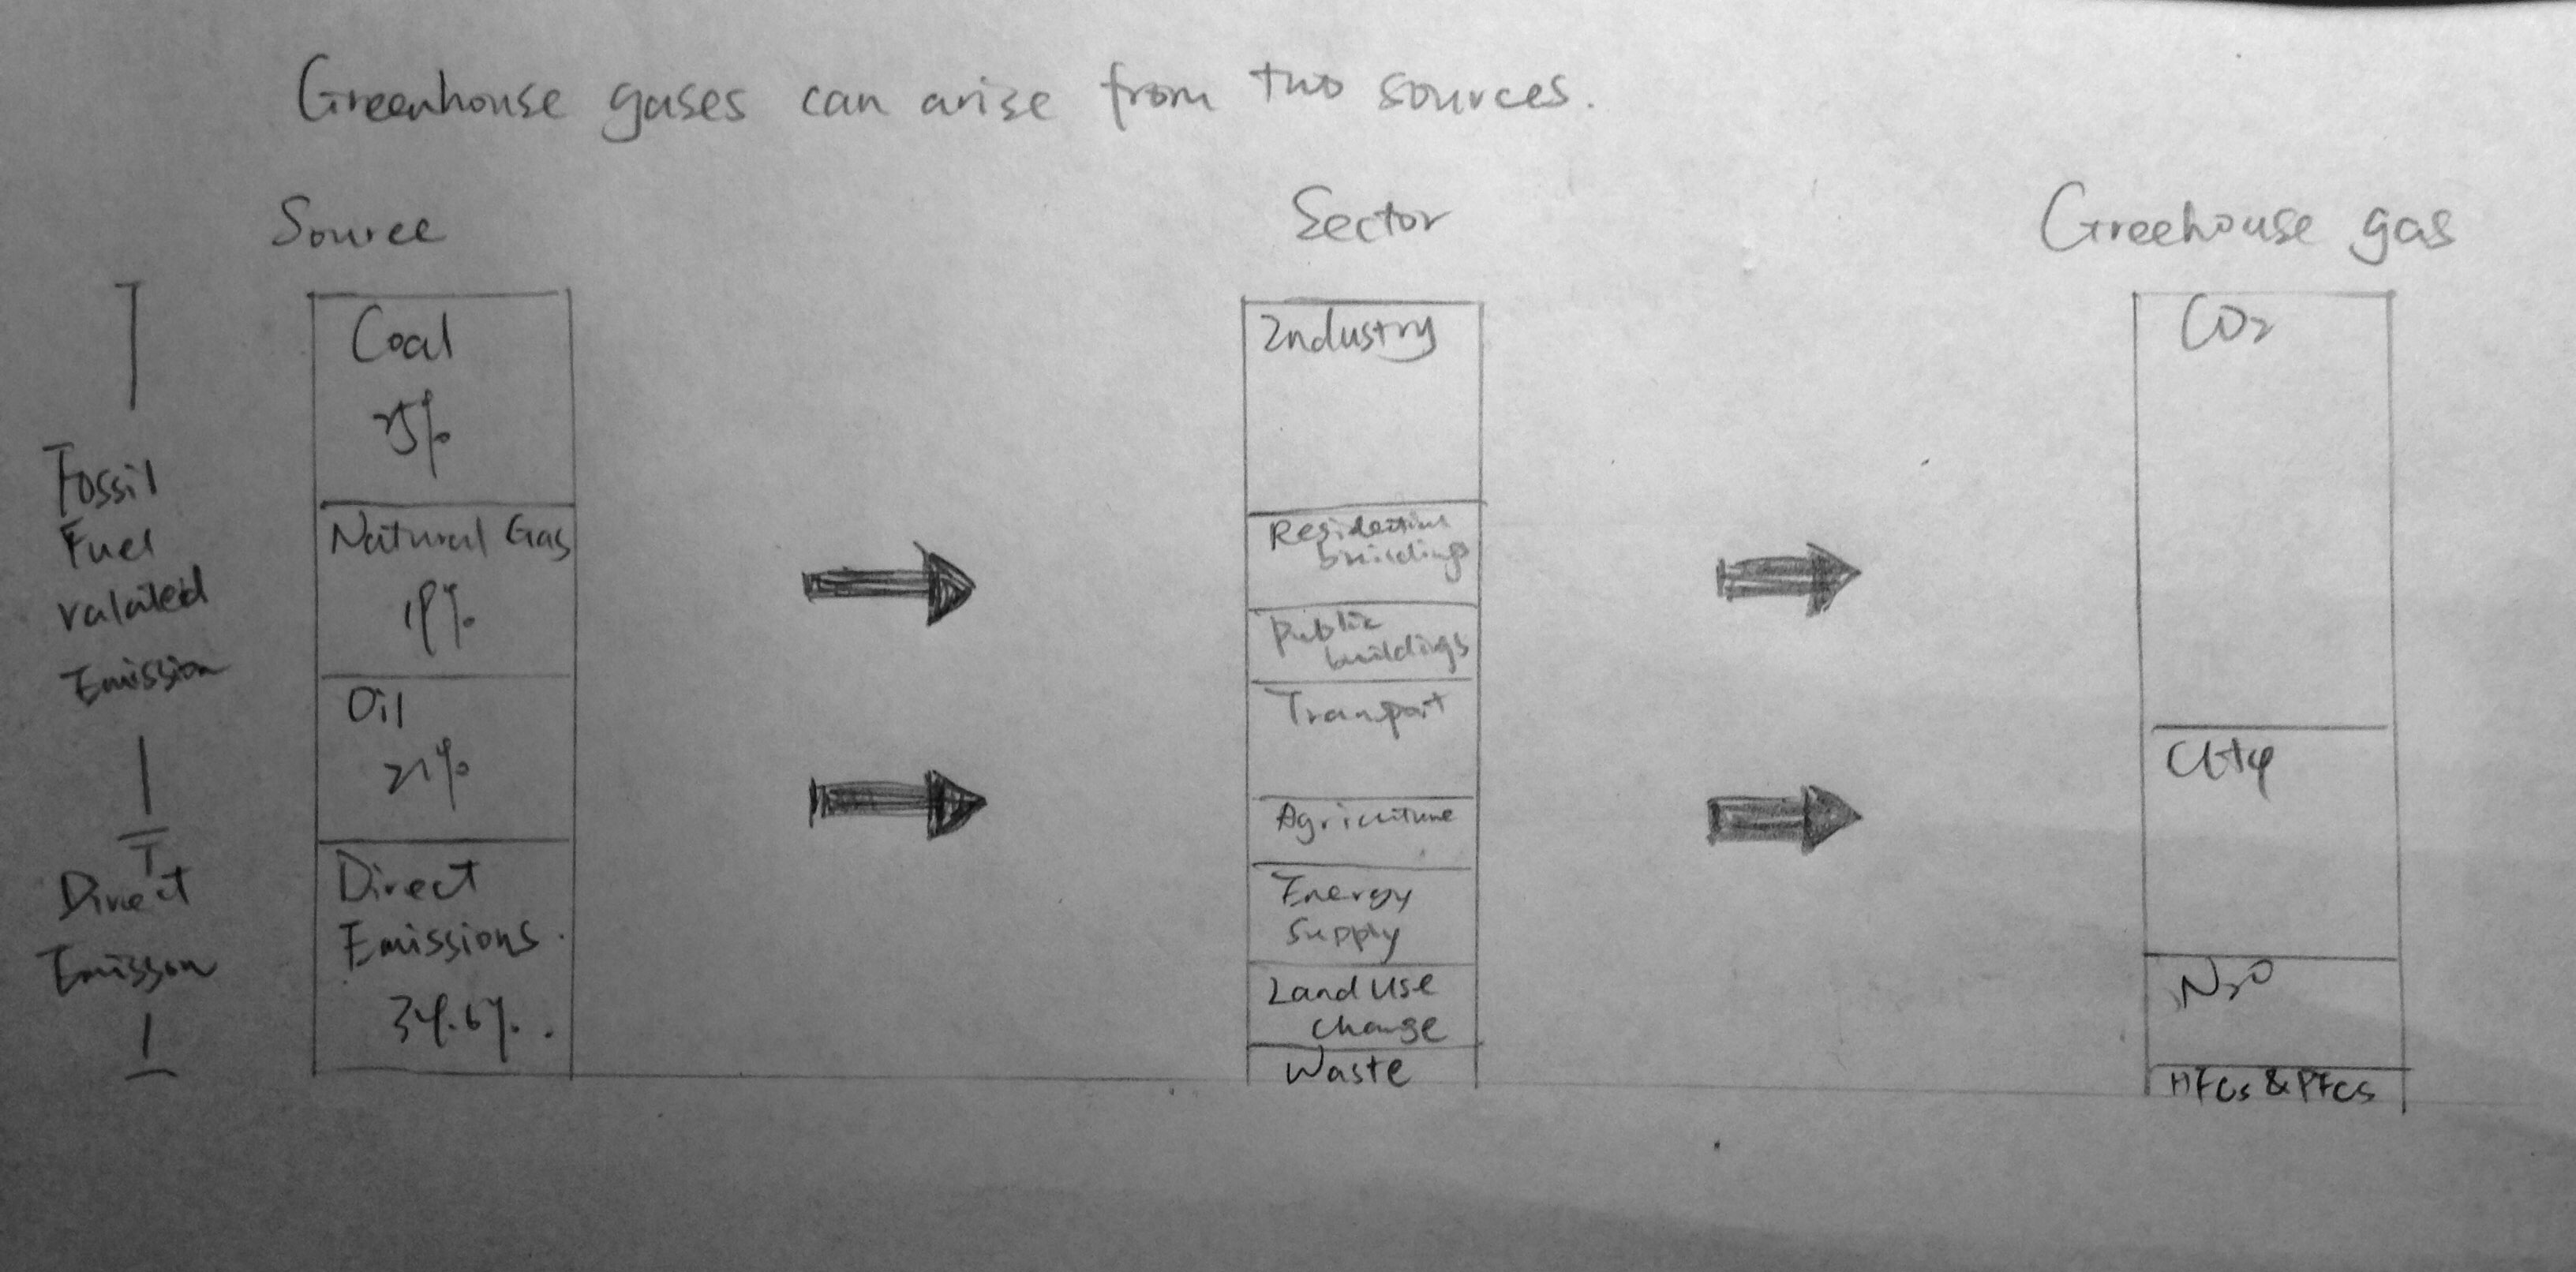 Greenhouse gases can arise from two sources.
Source
Sector
Greehouse gas
Fossil
Fuel
ralated
Emission
Direct
Emisson
Coal
25%
Natural Gas
19%
Oil
21%
Direct
Emissions.
34.6%.
Industry
Residential
buildings
Public
buildings
Transport
Agriculture
Energy
Supply
Land Use
change
Waste
CO2
CH4
N2O
HFCs & PFCs